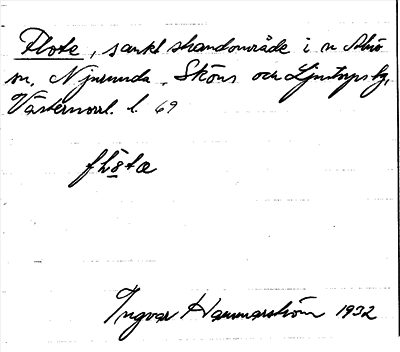 Flote, sankt strandområde i n Alnö
sn, Njurunda, Sköns och Ljustorps tg,
Västernorrl. l. 69
Ingvar Hammarström 1932